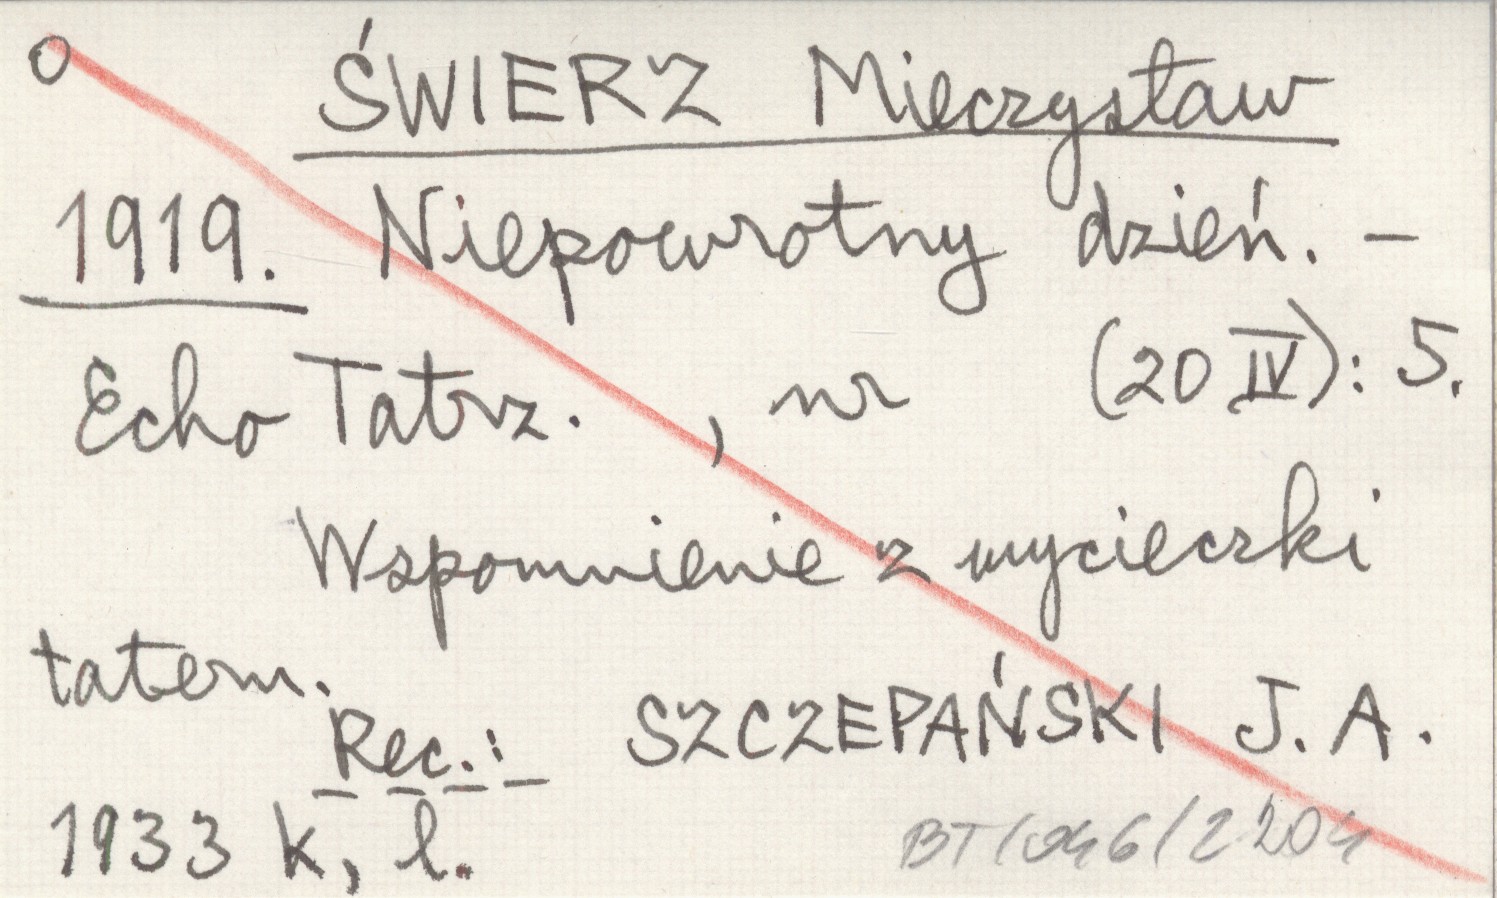 ŚWIERZ Mieczysław
1919. Niepowrotny dzień. –
Echo Tatrz. , nr (20 IV): 5.
Wspomnienie z wycieczki
tatern.
Rec.: SZCZEPAŃSKI J. A.
1933 k, l.